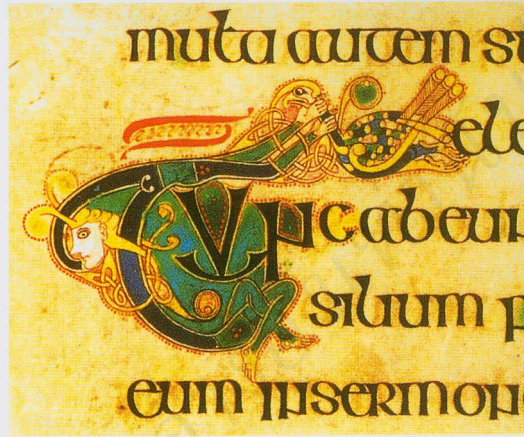 multi autem su
ele
Tunc abeun
silium p
eum insermon